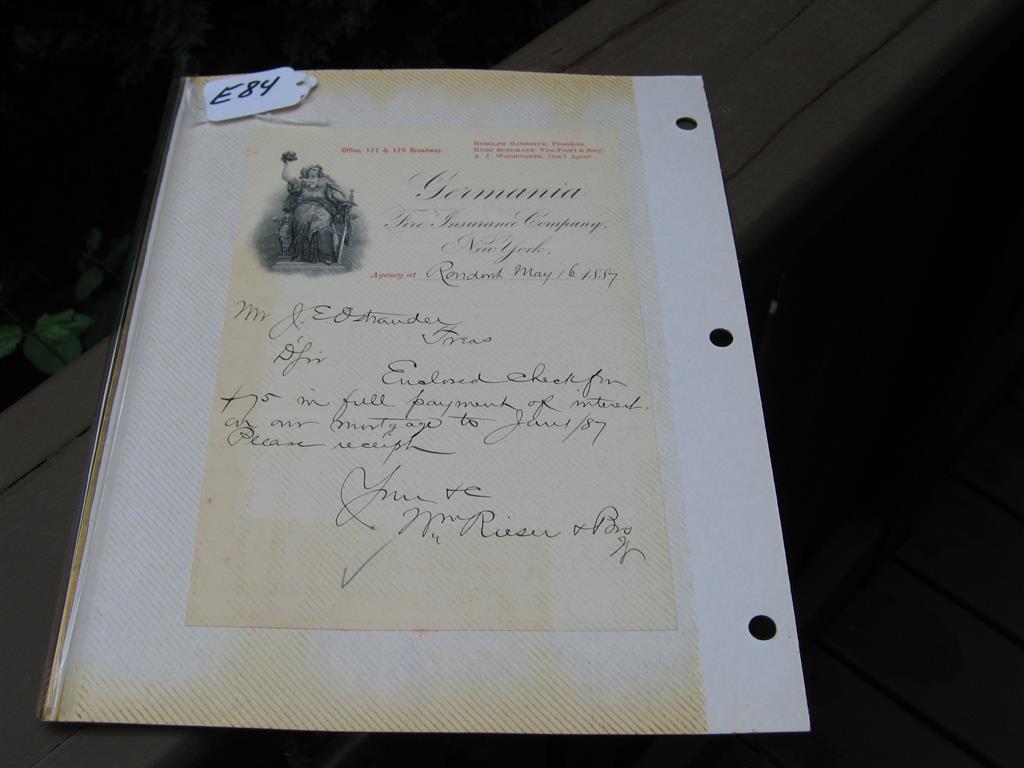 E84
Office, 177 & 179 Broadway.
RUDOLPH GARRIGUE, President,
HUGO SCHUMANN, Vice-Pres't & Secy.
A. J. WOODWORTH, Gen'l Agent.
Germania
Fire Insurance Company,
New York,
Agency at Rondout May 16 1887
Mr J. E Ostrander
Treas
D'Sir
Enclosed check for
$75 in full payment of interest
on our mortgage to Jany 1/87
Please receipt
Yours &c
Wm Rieser & Bro